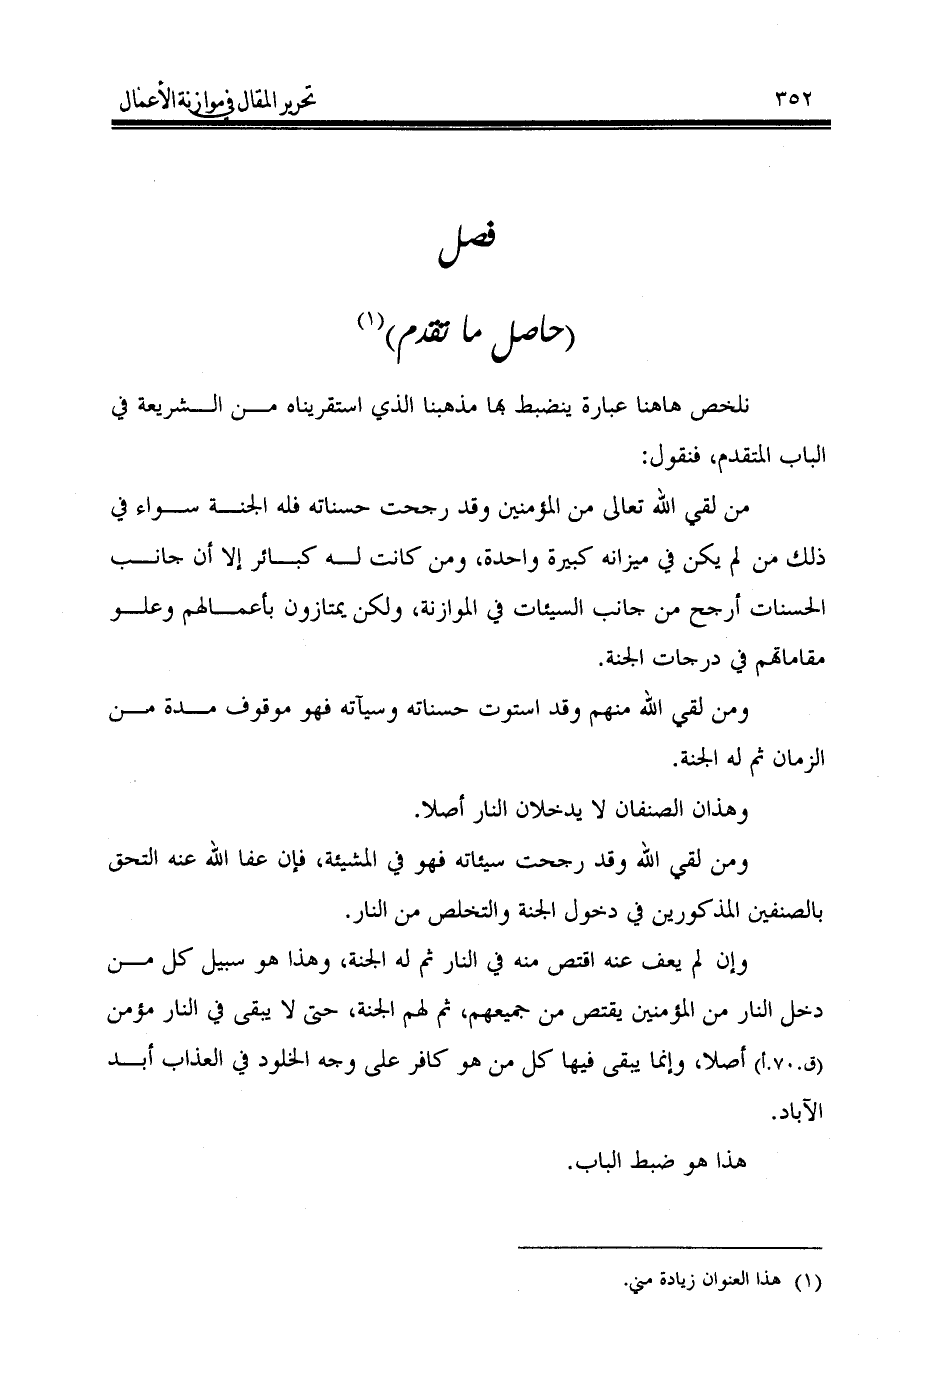 ٣٥٢ تحرير المقال في موازنة الأعمال
فصل
(حاصل ما تقدم)(١)
نلخص هاهنا عبارة ينضبط بها مذهبنا الذي استقريناه من الشريعة في
الباب المتقدم، فنقول:
من لقي الله تعالى من المؤمنين وقد رجحت حسناته فله الجنة سواء في
ذلك من لم يكن في ميزانه كبيرة واحدة، ومن كانت له كبائر إلا أن جانب
الحسنات أرجح من جانب السيئات في الموازنة، ولكن يمتازون بأعمالهم وعلو
مقاماتهم في درجات الجنة.
ومن لقي الله منهم وقد استوت حسناته وسيآته فهو موقوف مدة من
الزمان ثم له الجنة.
وهذان الصنفان لا يدخلان النار أصلا.
ومن لقي الله وقد رجحت سيئاته فهو في المشيئة، فإن عفا الله عنه التحق
بالصنفين المذكورين في دخول الجنة والتخلص من النار.
وإن لم يعف عنه اقتص منه في النار ثم له الجنة، وهذا هو سبيل كل من
دخل النار من المؤمنين يقتص من جميعهم، ثم لهم الجنة، حتى لا يبقى في النار مؤمن
(ق.٧٠.أ) أصلا، وإنما يبقى فيها كل من هو كافر على وجه الخلود في العذاب أبد
الآباد.
هذا هو ضبط الباب.
(١) هذا العنوان زيادة مني.